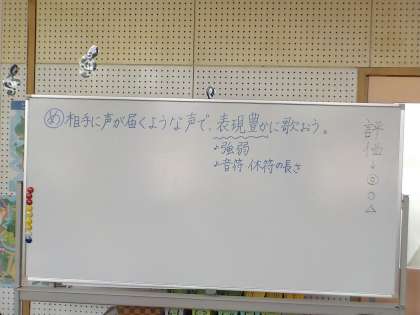 め 相手に声が届くような声で、表現豊かに歌おう。
・強弱
・音符 休符の長さ
評価
↓
◎
○
△